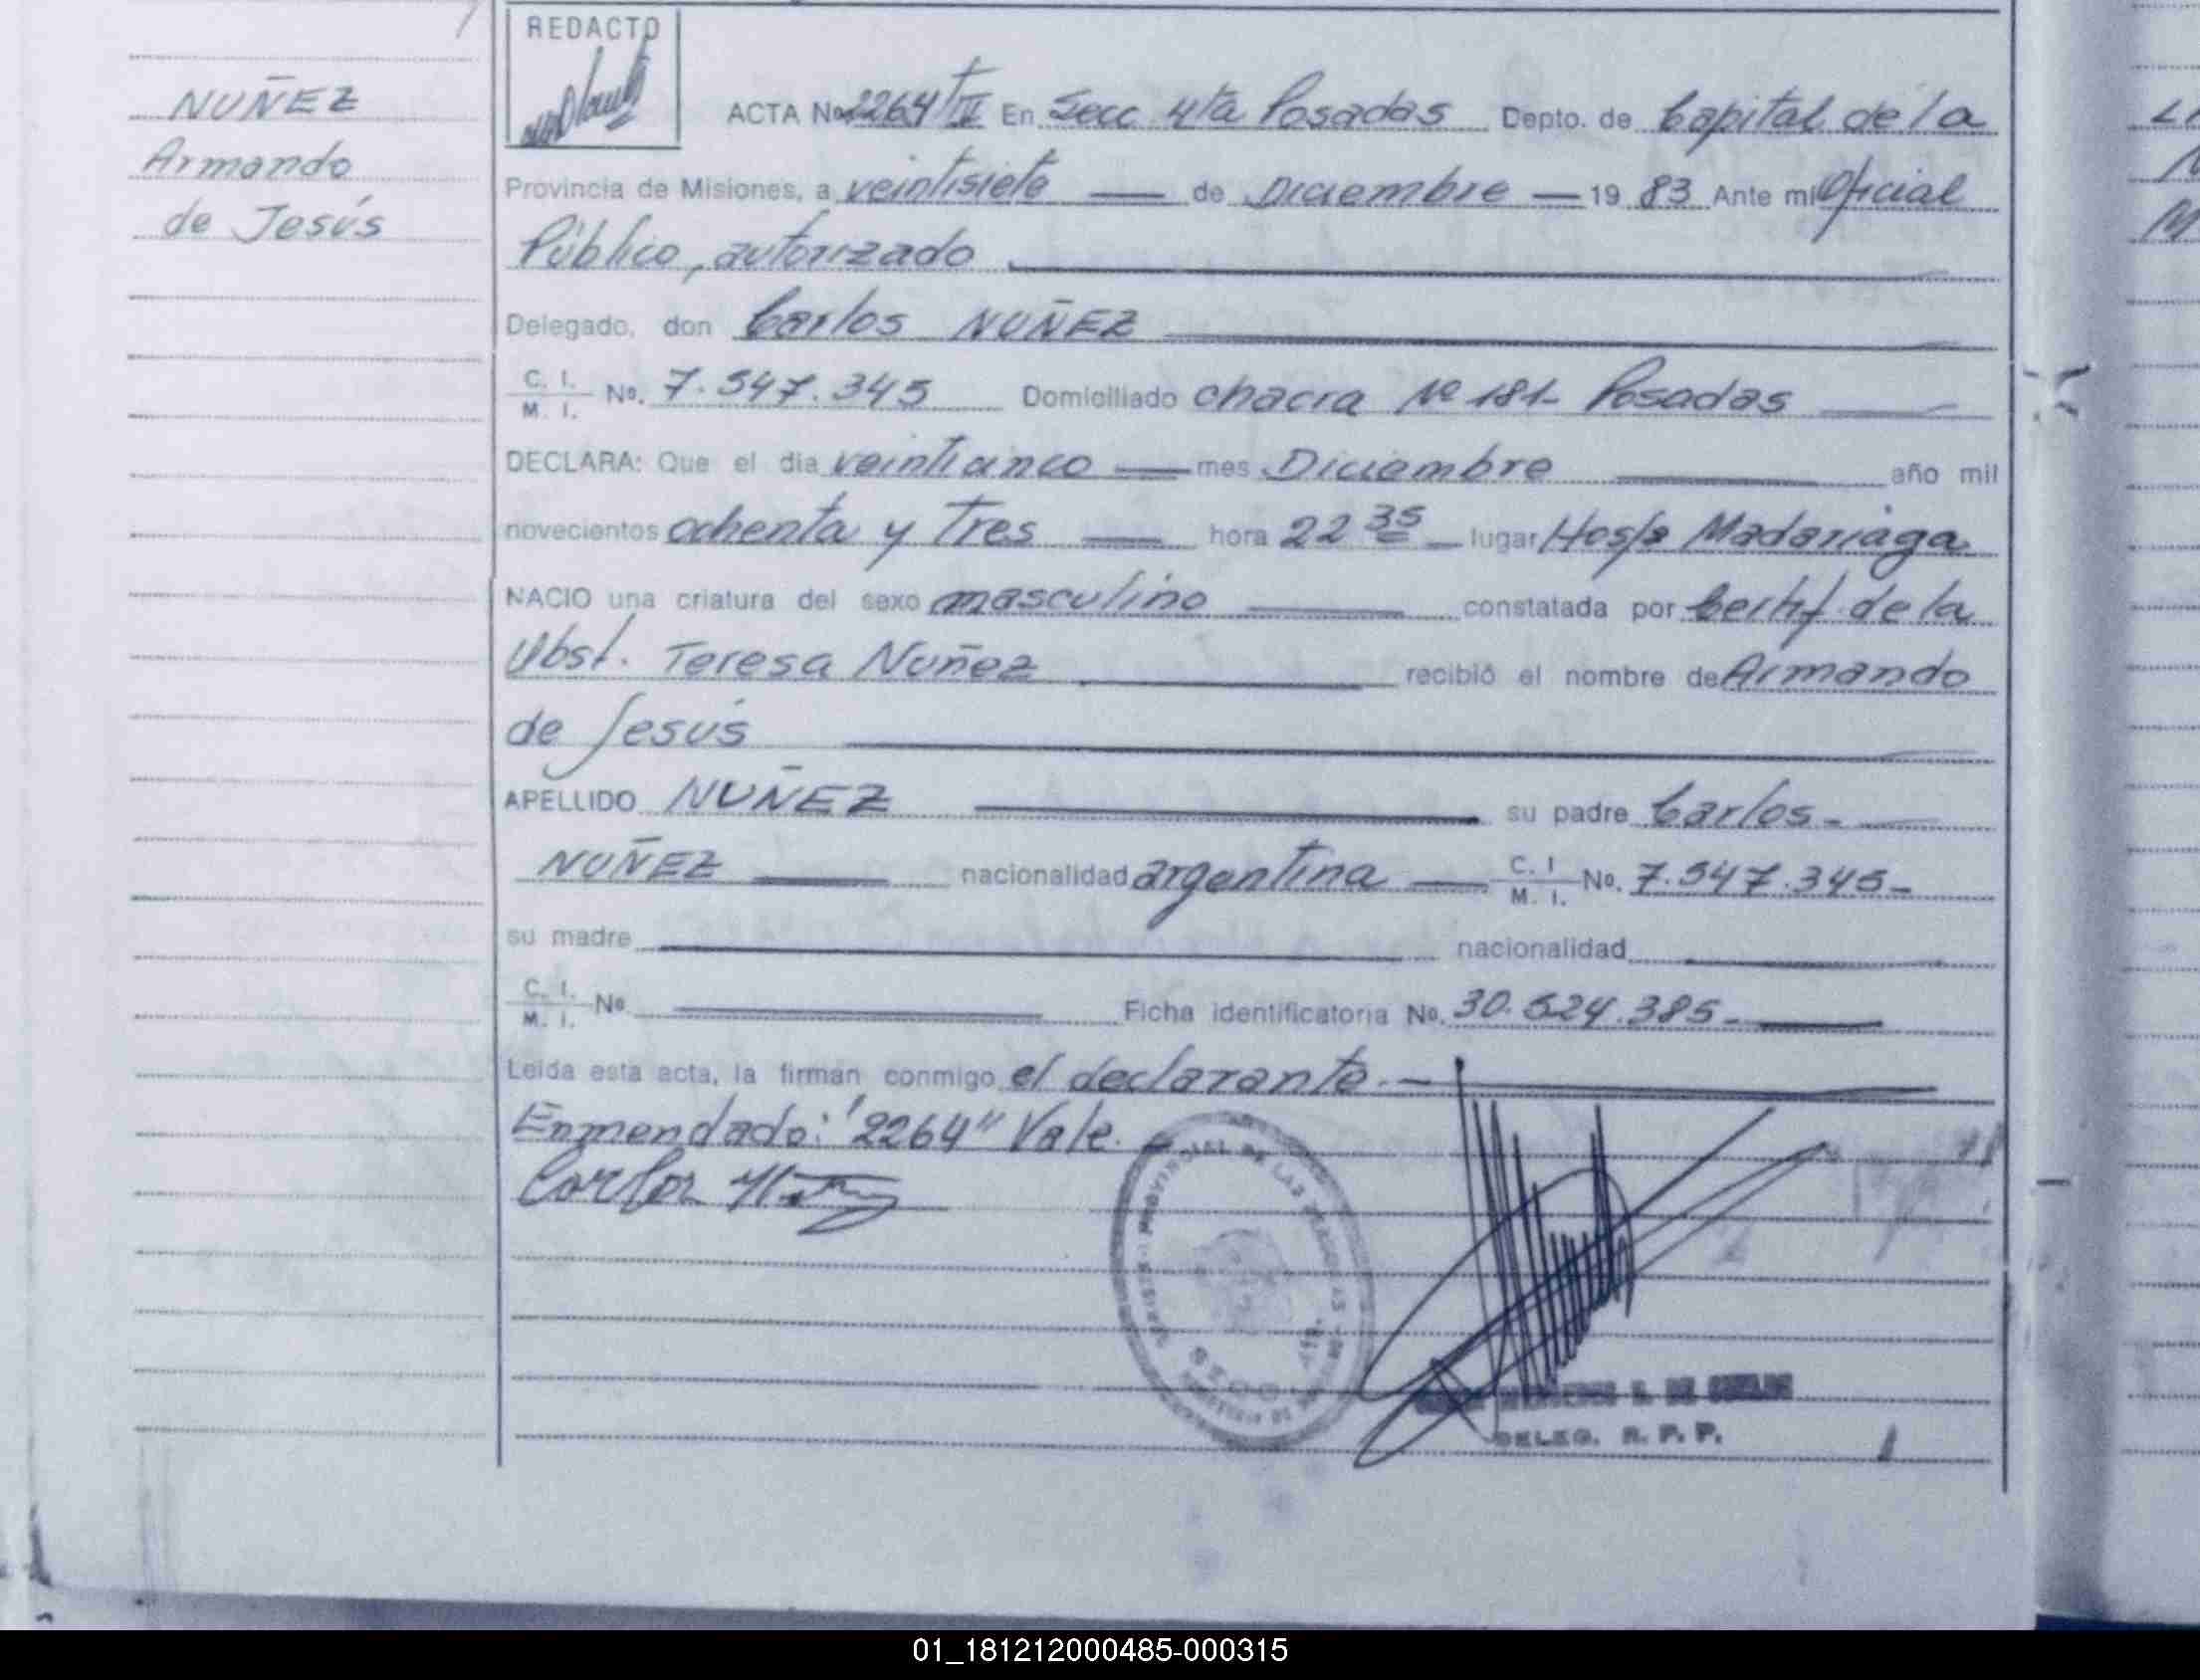 REDACTO
NUÑEZ
Armando
de Jesús
ACTA No 2264 T III En Secc 4ta Posadas Depto. de Capital de la
Provincia de Misiones, a veintisiete de Diciembre 19 83 Ante mi Oficial
Público, autorizado
Delegado, don Carlos NUÑEZ
C. I. M. I. No. 7.547.345 Domiciliado chacra Nº 181- Posadas
DECLARA: Que el dia veinticinco mes Diciembre año mil
novecientos ochenta y Tres hora 22 35 lugar Hosp Madariaga
NACIO una criatura del sexo masculino constatada por Certif. de la
Obst. Teresa Nuñez recibió el nombre de Armando
de Jesús
APELLIDO NUÑEZ su padre Carlos-
NUÑEZ nacionalidad argentina C. I M. I. No. 7.547.345-
su madre nacionalidad
C. I. M. I. No Ficha identificatoria No. 30.524.385-
Leida esta acta, la firman conmigo el declarante.-
Enmendado: "2264" Vale.
Carlos
PROVINCIAL DE LAS PERSONAS
DELEG. R. P. P.
01_181212000485-000315